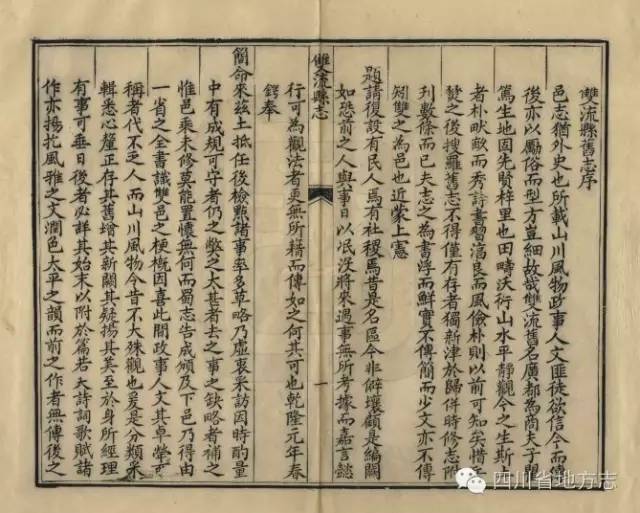 雙流縣舊志序
邑志猶外史也所載山川風物政事人文匪徒欲信今而傳
後亦以勵俗而型方豈細故哉雙流舊名廣都為商夫子
篤生地固先賢梓里也田疇沃衍山水平靜觀今之生斯土
者朴畎畝而秀詩書習湻良而風儉朴則以前可知矣惜兵
燹之後搜羅舊志不得僅有存者獨新津於歸併時修志附
列數條而已夫志之為書浮而鮮實不傳簡而少文亦不傳
矧雙之為邑也近蒙上憲
題請復設有民人焉有社稷焉昔是名區今非僻壤顧是編闕
如恐前之人與事日以泯沒將來遇事無所考據而嘉言懿
雙流縣志
一
行可為觀法者更無所藉而傳如之何其可也乾隆元年春
鍔奉
簡命來茲土抵任後檢點諸事率多草略乃虛衷采訪因時酌量
中有成規可守者仍之弊之大甚者去之事之缺略者補之
惟邑乘未修莫能置懷無何而蜀志告成頒及下邑乃得由
一省之全書識雙邑之梗概因喜此間政事人文其卓犖可
稱者代不乏人而山川風物今昔不大殊觀也爰是分類采
輯悉心釐正存其舊增其新闕其疑揚其美至於身所經理
有事可垂日後者必詳其始末以附於篇若夫詩詞歌賦諸
作亦揚扢風雅之文潤色太平之韻而前之作者無傳後之
四川省地方志